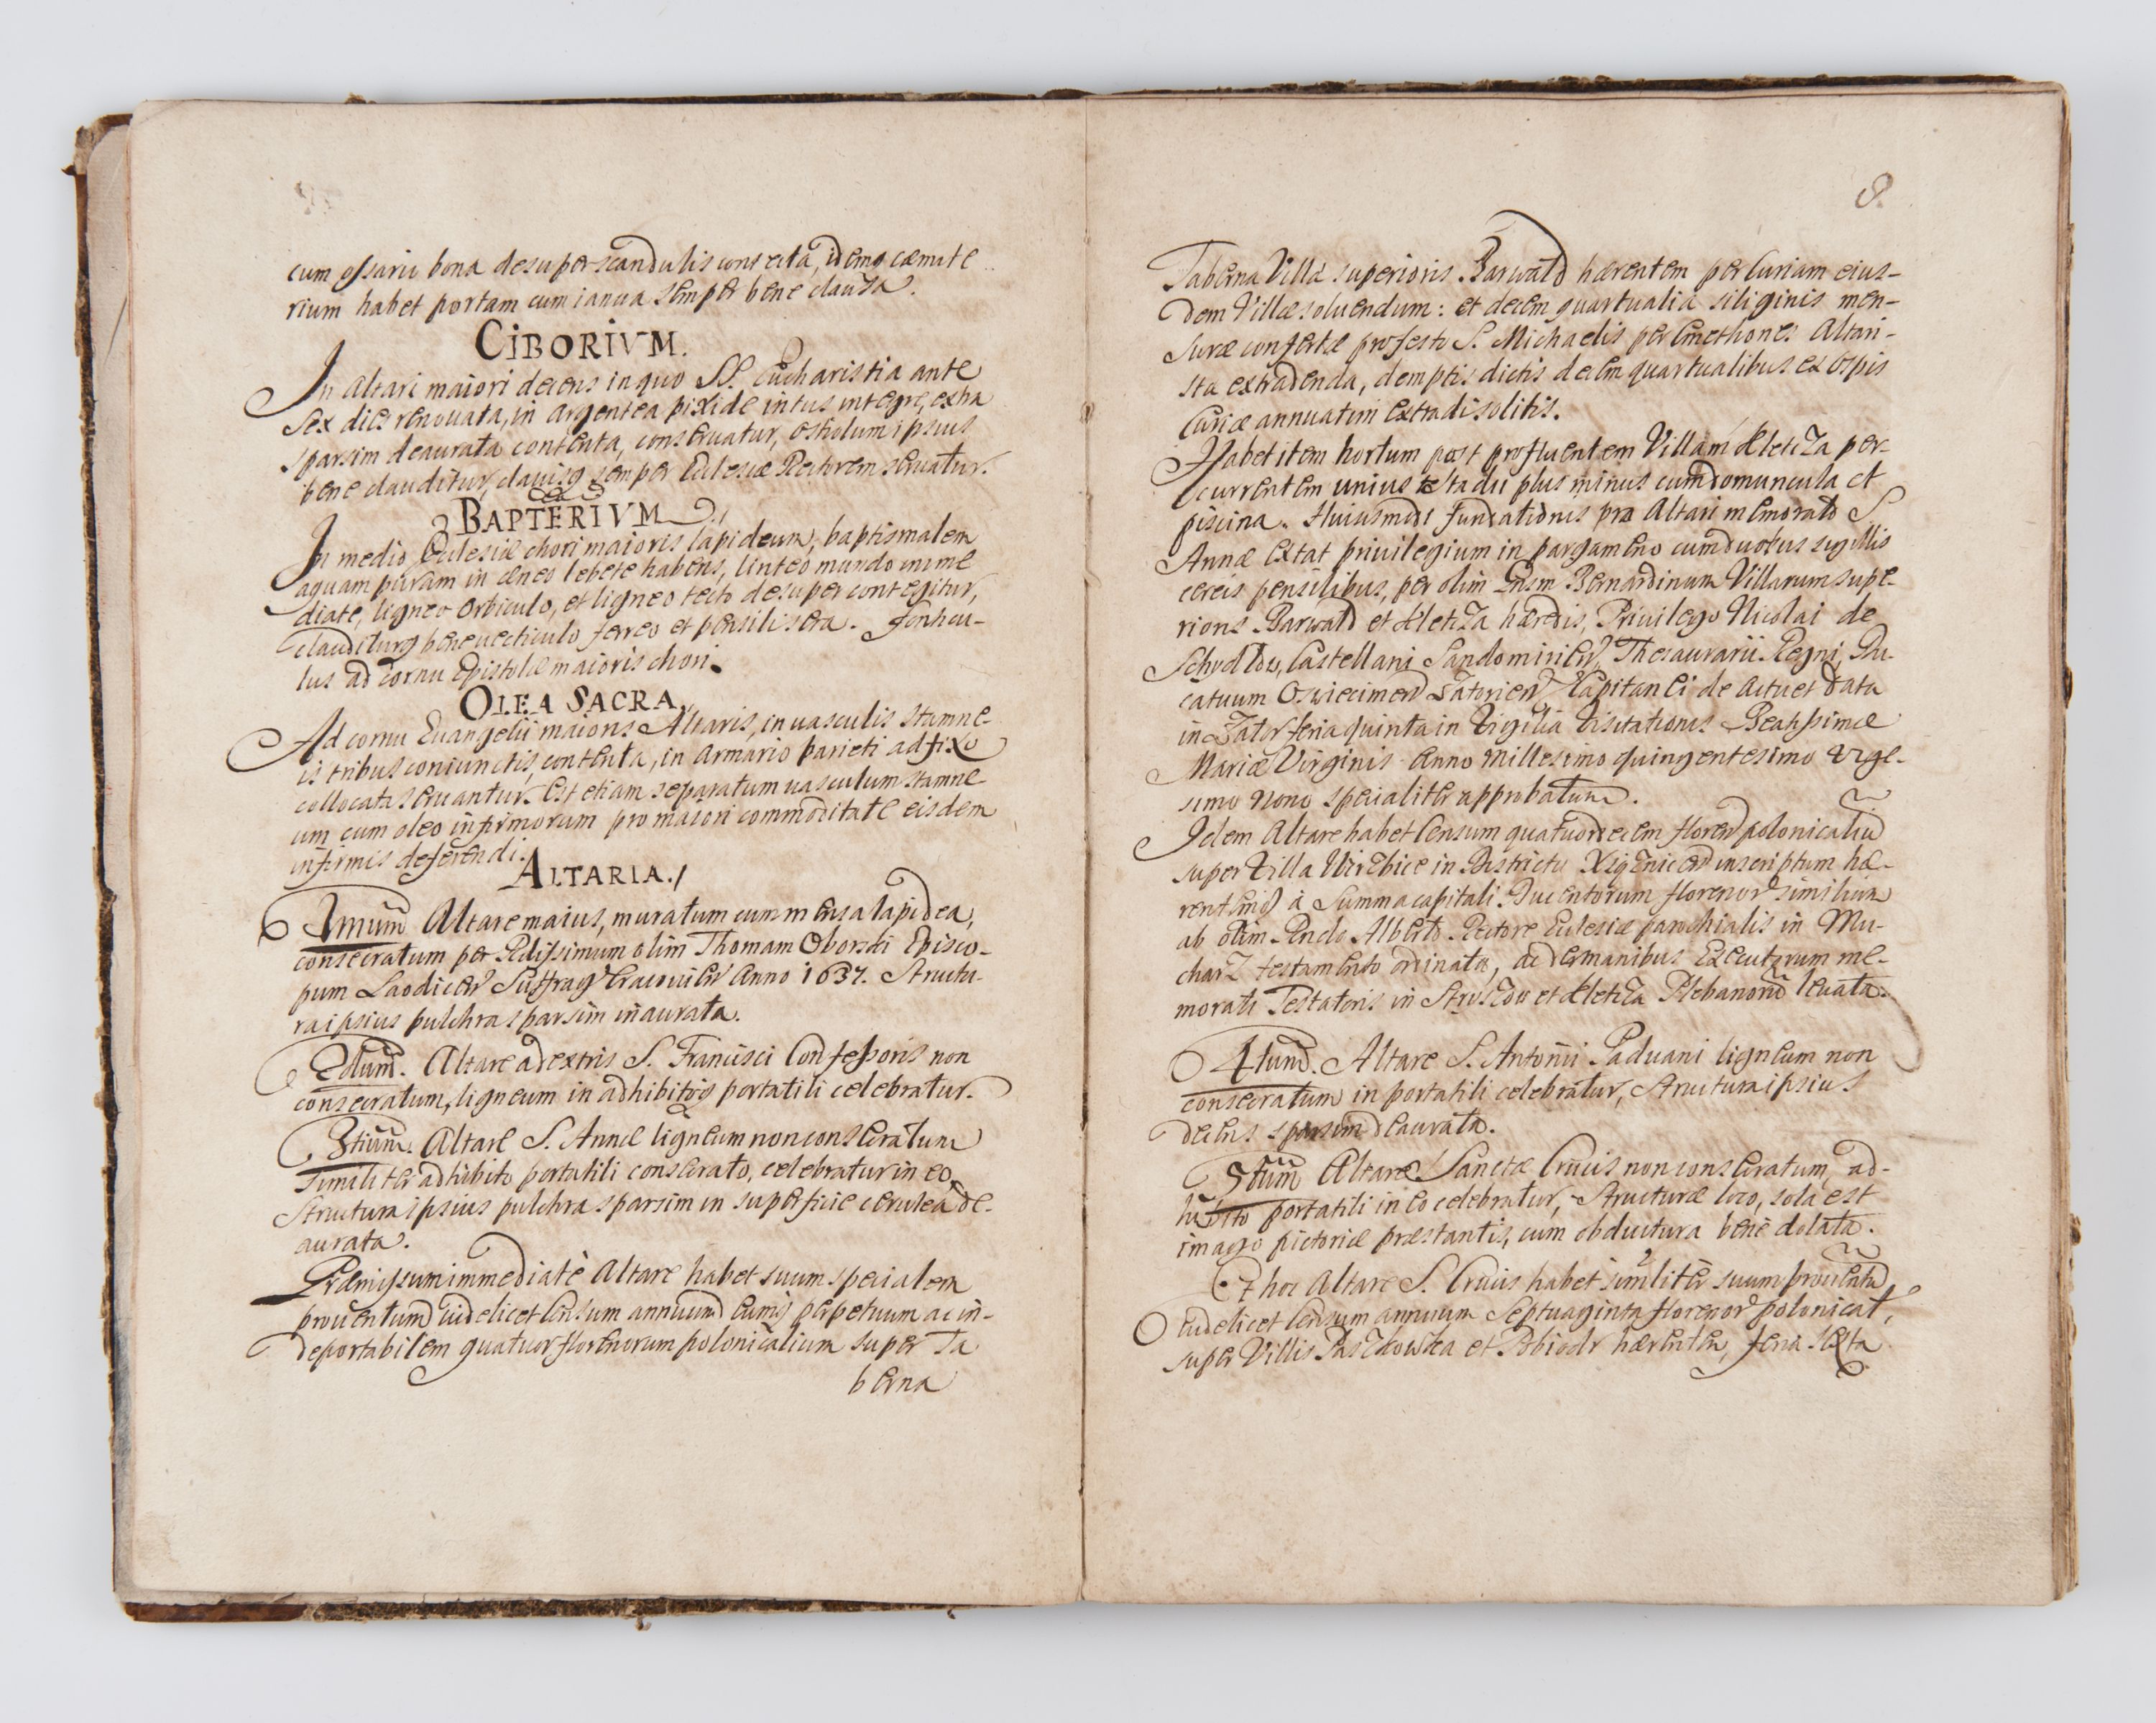 cum ossario bona desuper scandulis contecta, idemq cæmite
rium habet portam cum ianua semper bene clausa.
CIBORIVM.
In Altari maiori decens in quo SS. Eucharistia ante
sex dies renouata, in argentea pixide intus integre, extra
sparsim deaurata contenta, conseruatur, ostiolum ipsius
bene clauditur, clauisq semper Ecclesiæ Rectorem seruatur.
BAPTERIVM
In medio Ecclesiæ chori maioris lapideum, baptismalem
aquam puram in æneo lebete habens, linteo mundo imme
diate, ligneo orbiculo, et ligneo tecto desuper contegitur,
clauditurq bene uecticulo ferreo et pensili sera. Fonticu-
lus ad cornu Epistolæ maioris chori.
OLEA SACRA.
Ad cornu Euangelii maioris Altaris, in uasculis stamne-
is tribus coniunctis, contenta, in armario parieti adfixo
collocata seruantur. Est etiam separatum uasculum stamne
um cum oleo infirmorum pro maiori commoditate eisdem
infirmis deferendi.
ALTARIA.
1mum Altare maius, muratum cum mensa lapidea,
consecratum per Rdissimum olim Thomam Oborski Episco-
pum Laodicen Suffrag Cracouien Anno 1637. Structu-
ra ipsius pulchra sparsim inaurata.
2dum. Altare a dextris S. Francisci Confessoris non
consecratum, ligneum in adhibitoq portatili celebratur.
3tium. Altare S. Annæ ligneum non consecratum
similiter adhibito portatili consecrato, celebratur in eo,
Structura ipsius pulchra sparsim in superficie cerulea de-
aurata.
Præmissum immediatè Altare habet suum specialem
prouentum uidelicet Censum annuum eumq perpetuum ac in-
deportabilem quatuor florenorum polonicalium super Ta
berna
8.
Taberna Villæ superioris Barwald hærentem per Curiam eius-
dem Villæ soluendum: et decem quartualia siliginis men-
suræ confertæ pro festo S. Michaelis per Cmethones Altari-
sta extradenda, demptis dictis decem quartualibus ex ospis
Curiæ annuatim extradi solitis.
Habet item hortum post profluentem Villam Kletcza per-
currentem unius stadii plus minus cum domuncula et
piscina. Huiusmodi fundationis pro Altari memorato S.
Annæ extat priuilegium in pargameno cum duobus sigillis
cereis pensilibus, per olim Gnsm Bernardinum Villarum supe-
rioris Barwald et Kletcza hæredis, Priuilegio Nicolai de
Schydlow, Castellani Sandomirien, Thesaurarii Regni, Du-
catuum Oswiecimen Zatorien Capitanei de actu et data
in Zator feria quinta in Vigilia Visitationis Beatissimæ
Mariæ Virginis Anno Millesimo quingentesimo vige-
simo nono specialiter approbatum.
Idem Altare habet Censum quatuordecem floren polonicaliu
super Villa Wirzbice in Districtu Xięznicen inscriptum hæ-
rentemq à summa capitali Ducentorum florenor similium
ab olim Rndo Alberto Rectore Ecclesiæ parochialis in Mu-
charz testamento ordinata, ac de manibus Executorum me-
morati Testatoris in Stryszow et Kletcza Plebanorum leuata.
4tum. Altare S. Antonii Paduani ligneum non
consecratum in portatili celebratur, Structura ipsius
decens sparsim deaurata.
5tum Altare Sanctæ Crucis non consecratum, ad-
hibito portatili in eo celebratur, Structuræ loco, sola est
imago pictoriæ præstantis, cum obductura bene dolata.
Et hoc Altare S. Crucis habet similiter suum prouentu
uidelicet Censum annuum Septuaginta florenor polonical,
super Villis Paszkowka et Pobiedr hærenten, feria sexta